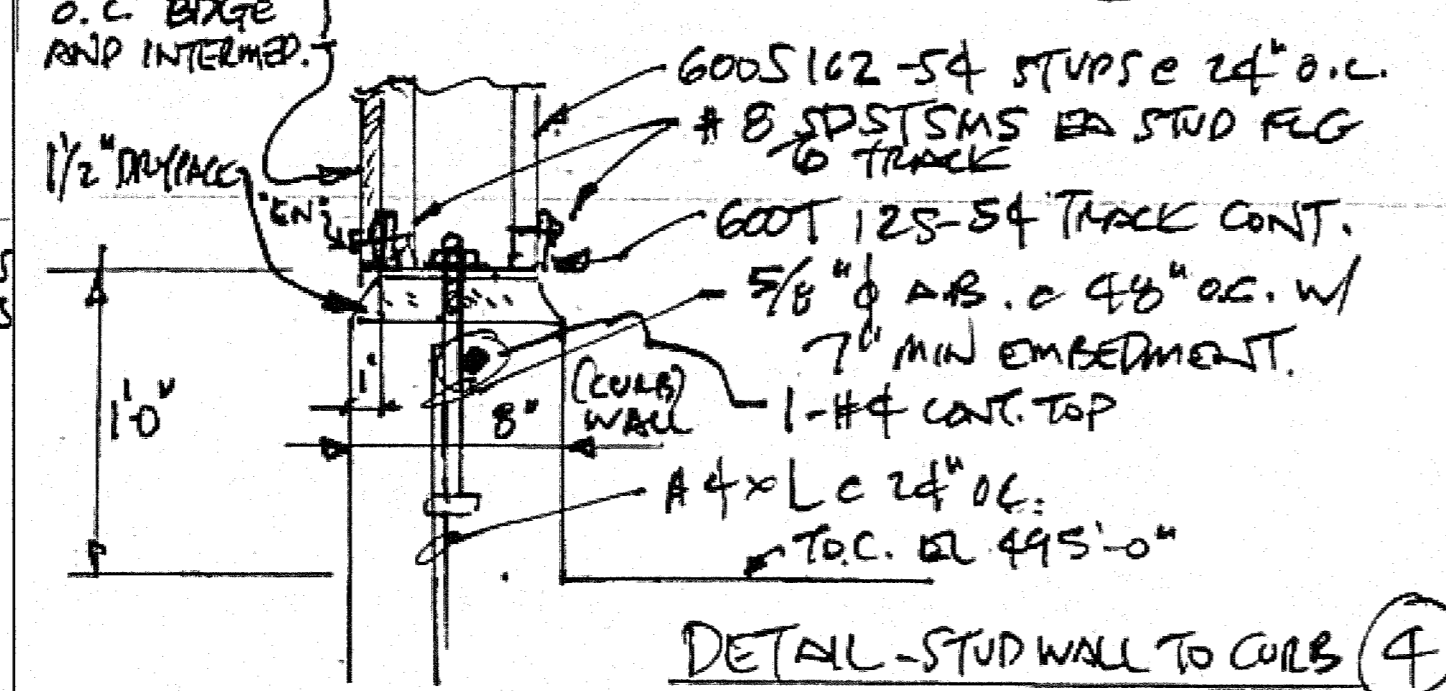 O.C EDGE
AND INTERMED.
600S162-54 STUDS @ 24" O.C.
#8 SDSTSMS EA STUD FLG
TO TRACK
1 1/2" DRYPACK
"EN"
600T 125-54 TRACK CONT.
5/8"φ A.B. @ 48" O.C. W/
7" MIN EMBEDMENT.
1"
8"
(CURB)
WALL
1-#4 CONT. TOP
1'-0"
#4 x L @ 24" OC.
T.O.C. EL 495'-0"
DETAIL - STUD WALL TO CURB 4